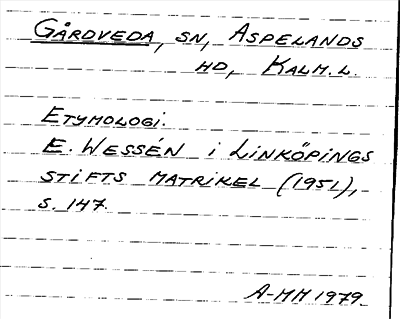 GÅRDVEDA, SN, ASPELANDS
HD, KALM. L.
ETYMOLOGI.
E. WESSÉN i LINKÖPINGS
STIFTS MATRIKEL (1951),
S. 147.
A-MM 1979